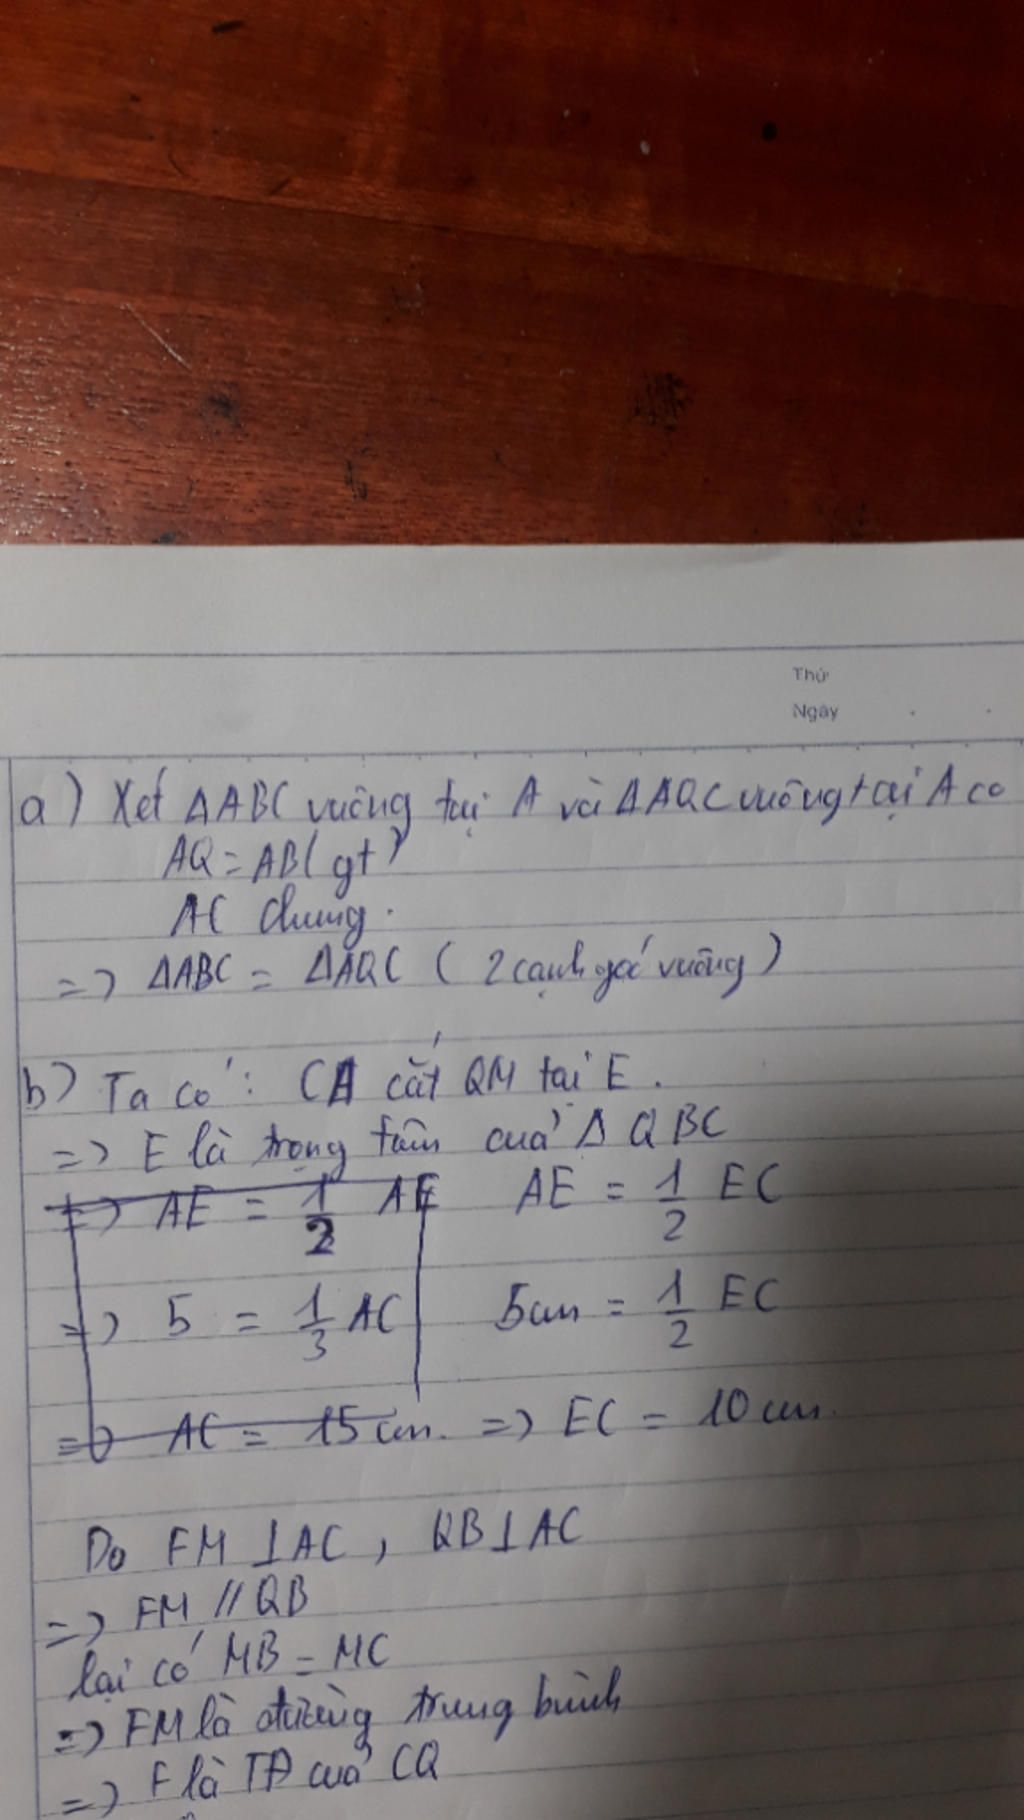 Thứ
Ngày
a) Xét ΔABC vuông tại A và ΔAQC vuông tại A co
AQ = AB (gt)
AC chung.
=> ΔABC = ΔAQC ( 2 cạnh góc vuông )
b) Ta có : CA cắt QM tại E .
=> E là trọng tâm của Δ QBC
=> AE = 1/2 AE AE = 1/2 EC
=> 5 = 1/3 AC 5cm = 1/2 EC
=> AC = 15 cm. => EC = 10 cm.
Do FM ⊥ AC , QB ⊥ AC
=> FM // QB
lại có MB = MC
=> FM là đường trung bình
=> F là TĐ của CQ